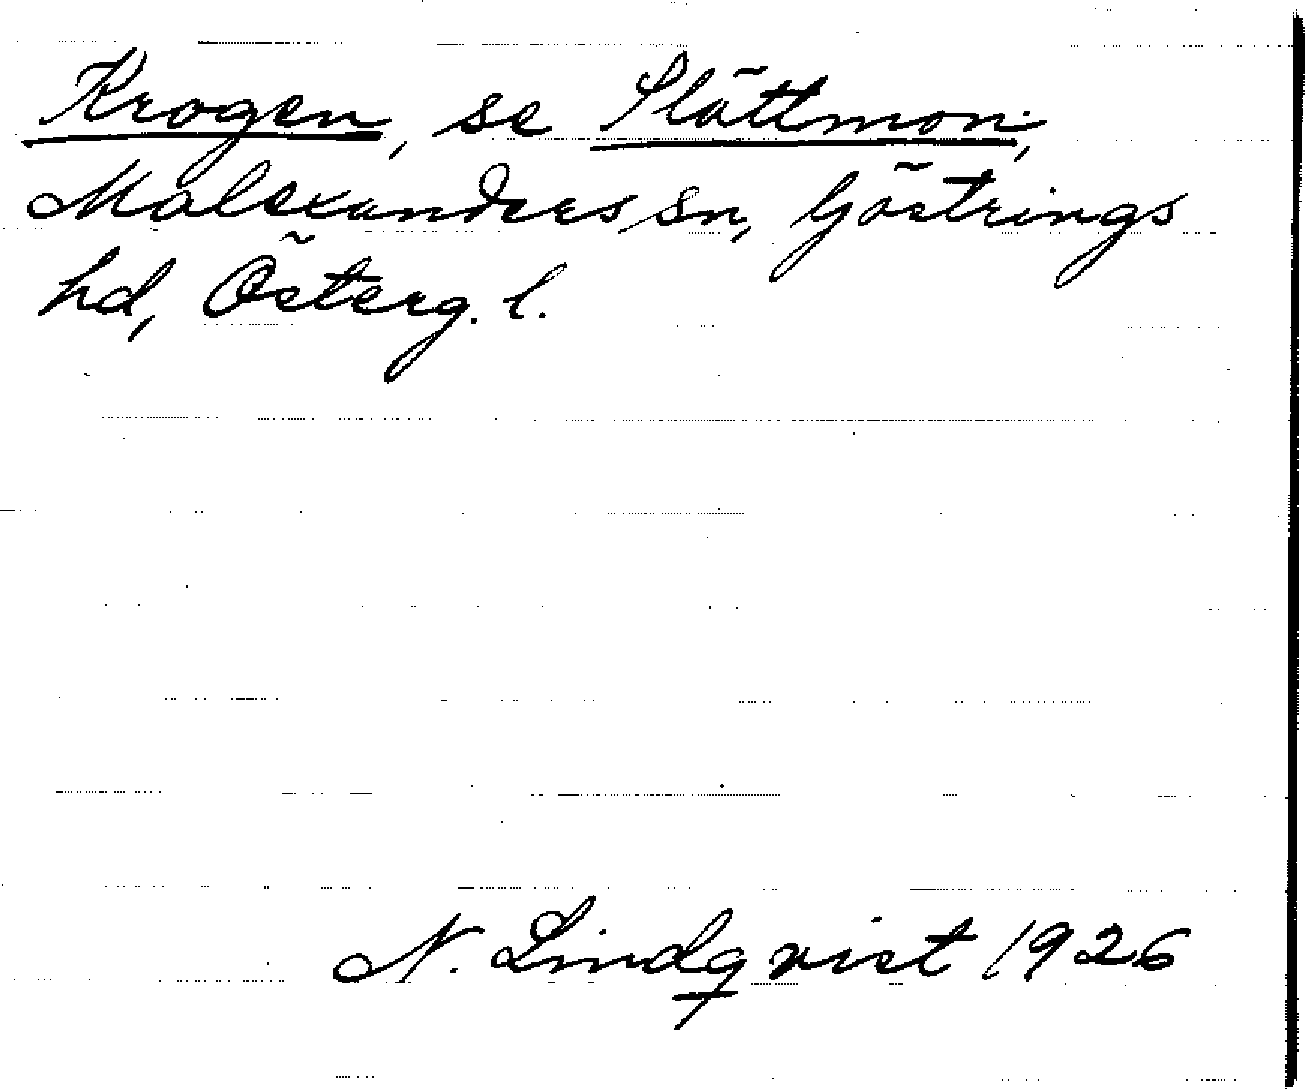 Krogen, se Slättmon,
Malexanders sn, Göstrings
hd, Österg. l.
N. Lindqvist 1926